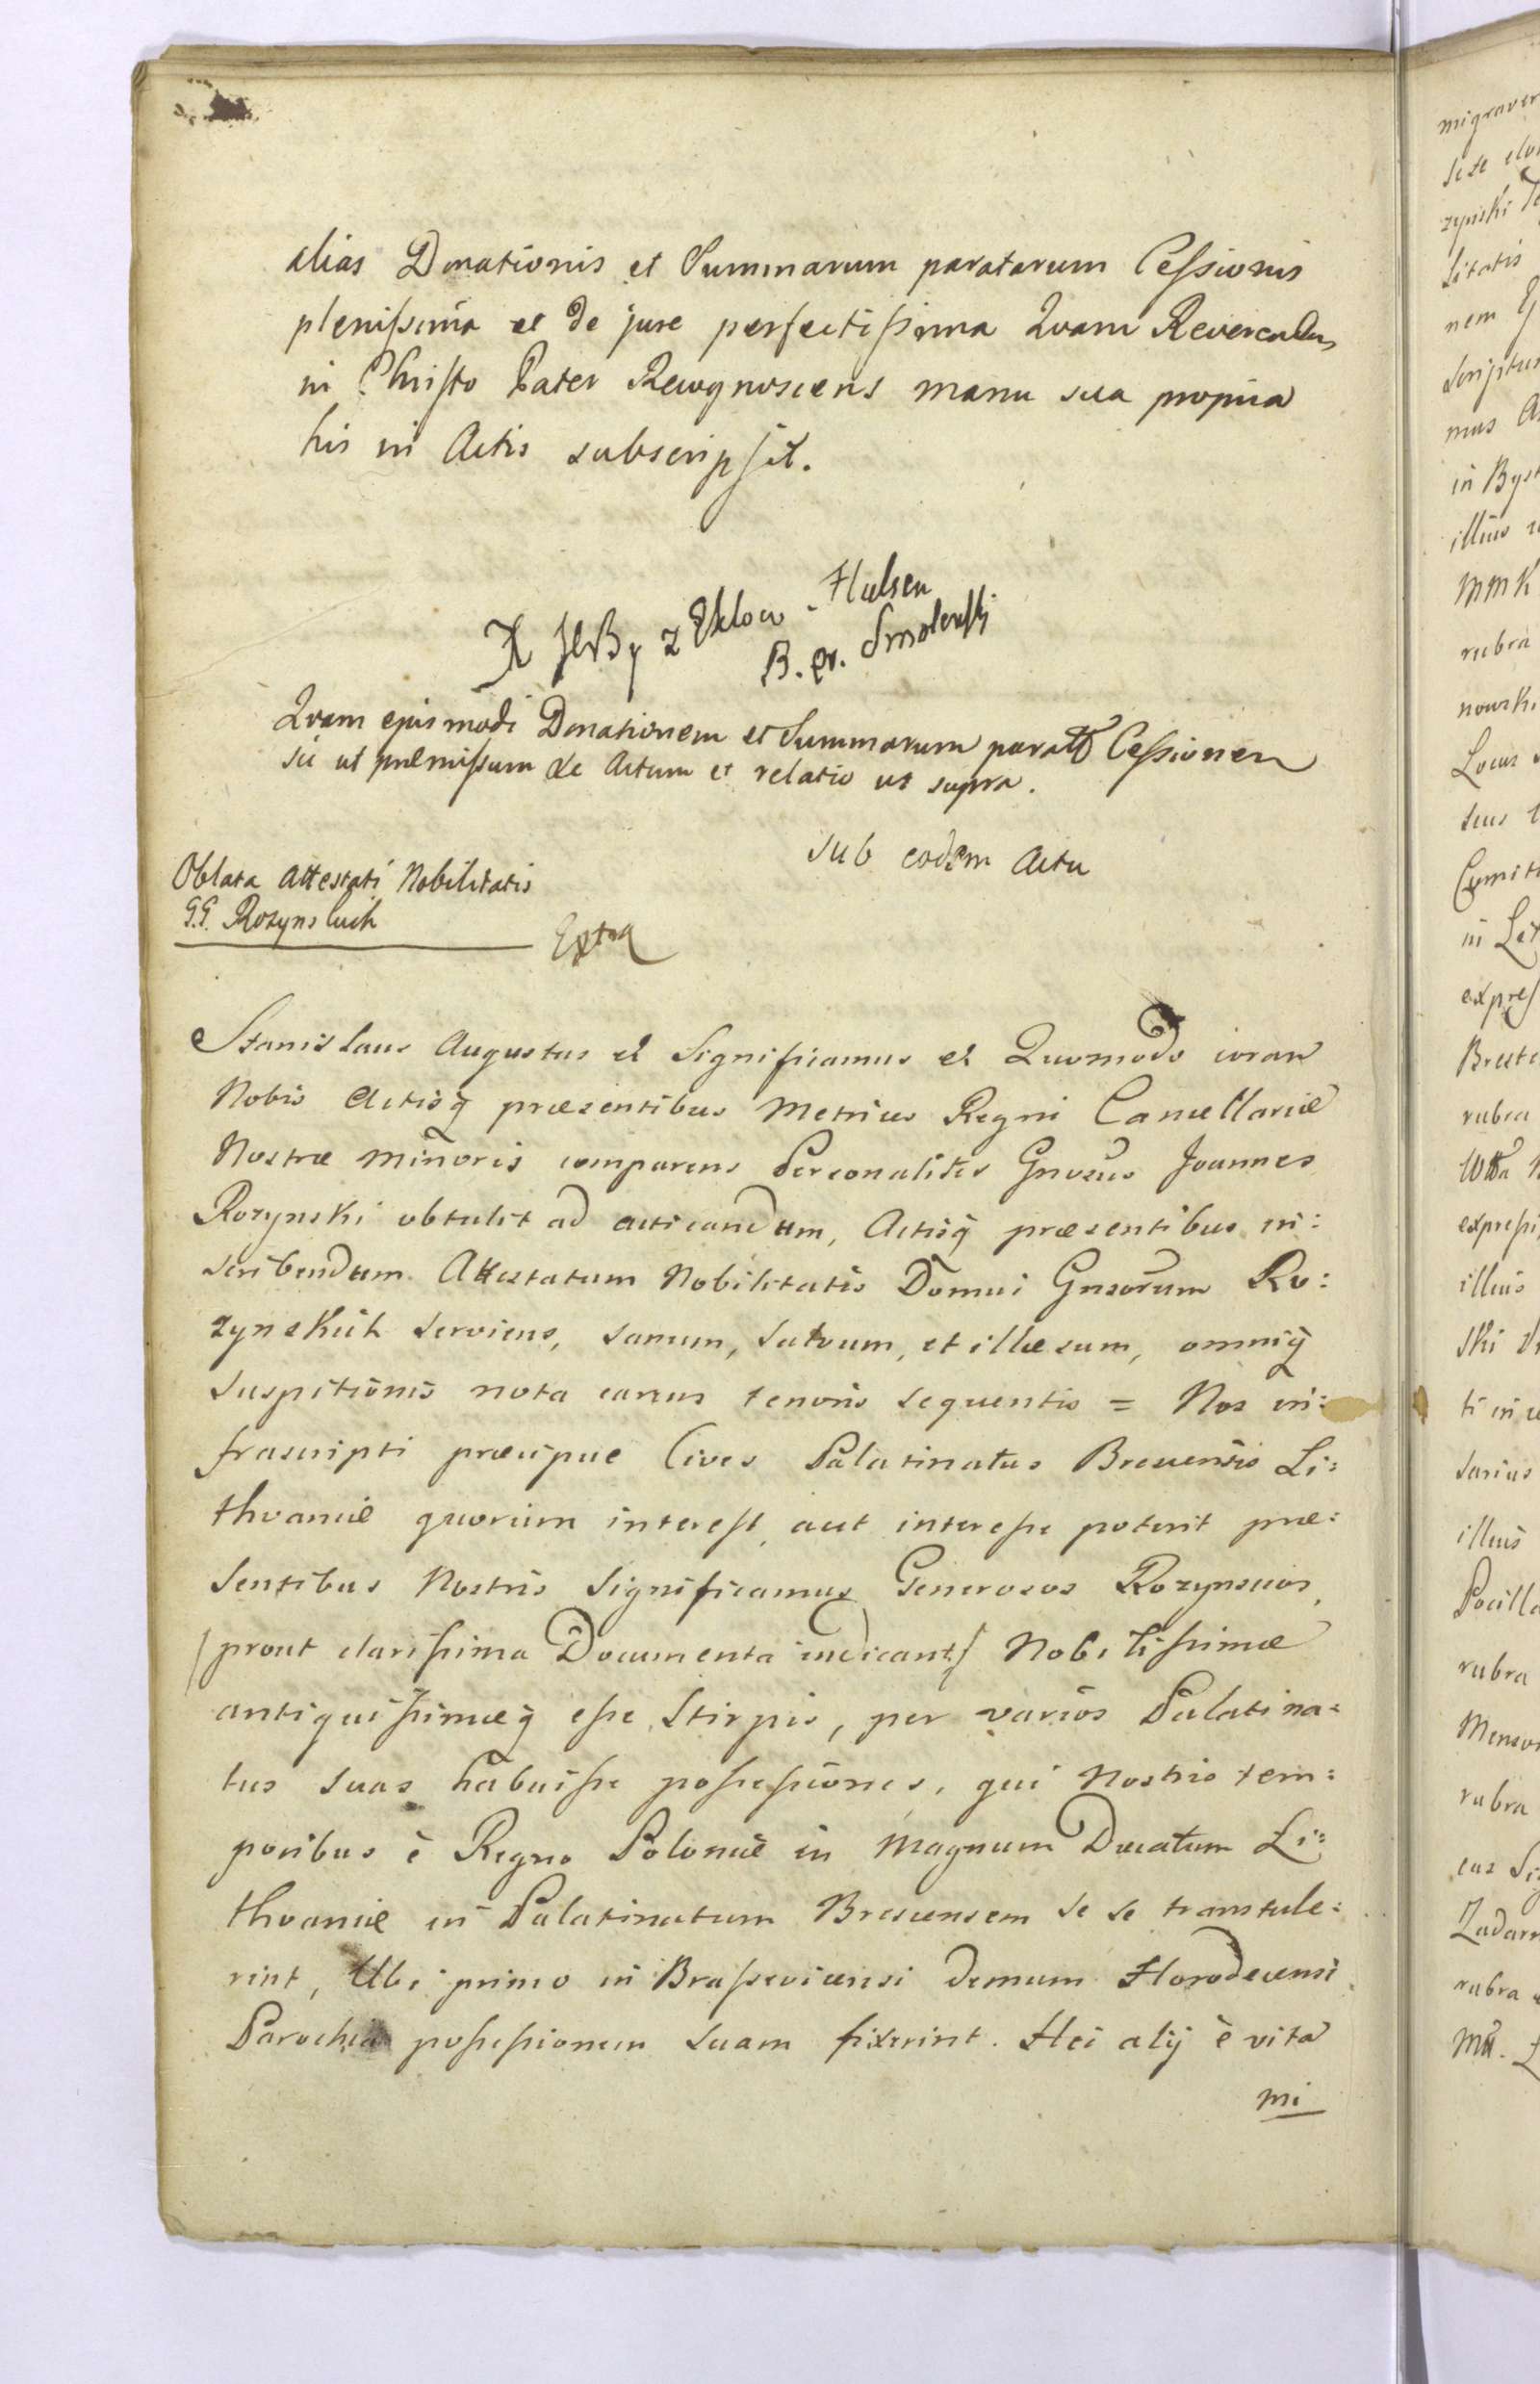 alias Donationis et Summarum paratarum Cessionis
plenissima et de jure perfectissima Quam Reverendus
in Christo Pater Recognoscens manu sua propria
his in Actis subscripsit.
X JHBy z Eklow Hulsen
B. Smolenski
Quam ejusmodi Donationem et Summarum paratt Cessionem
sic ut præmissum Actum et relatio ut supra.
Sub eodem Actu
Oblata Attestati Nobilitatis
G.G. Rozynskich
Stanislaus Augustus et Significamus et Quomodo coram
Nobis Actisq præsentibus Metrices Regni Cancellariæ
Nostræ Minoris comparens Personaliter Gnosus Joannes
Rozynski obtulit ad acticandum, Actisq præsentibus in:
scribendum Attestatum Nobilitatis Domui Gnsorum Ro:
zynskich serviens, sanum, salvum, et illæsum, omniq
suspitionis nota carens tenoris sequentis = Nos in:
frascripti præcipue Cives Palatinatus Brescensis Li:
thvaniæ quorum interest, aut interesse poterit præ:
sentibus Nostris Significamus Generosos Rozynscios,
/prout clarissima Documenta indicant/ Nobilissimæ
antiquissimæq esse Stirpis, per varios Palatina:
tus suas habuisse possessiones, qui Nostris tem:
poribus è Regno Poloniæ in Magnum Ducatum Li:
thvaniæ in Palatinatum Brescensem se se transtule:
rint, Ubi primo in Brassevicensi demum Horodecensi
Parochia possessionem suam fixerint. Hei alij è vita
mi